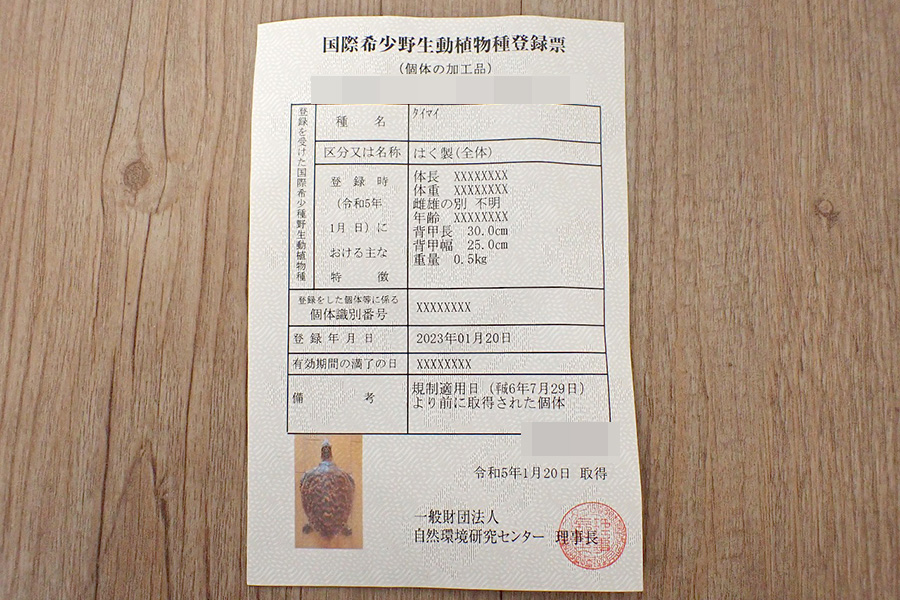 国際希少野生動植物種登録票
(個体の加工品)
登録を受けた国際希少種野生動植物種
種 名
タイマイ
区分又は名称
はく製(全体)
登 録 時
(令和5年
1月 日)に
おける主な
特 徴
体長 XXXXXXXX
体重 XXXXXXXX
雌雄の別 不明
年齢 XXXXXXXX
背甲長 30.0cm
背甲幅 25.0cm
重量 0.5kg
登録をした個体等に係る
個体識別番号
XXXXXXXX
登 録 年 月 日
2023年01月20日
有効期間の満了の日
XXXXXXXX
備 考
規制適用日 (平成6年7月29日)
より前に取得された個体
令和5年1月20日 取得
一般財団法人
自然環境研究センター 理事長